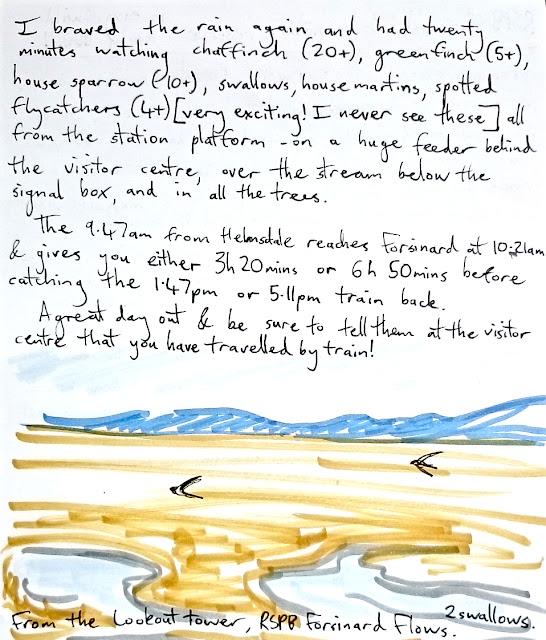 I braved the rain again and had twenty
minutes watching chaffinch (20+), greenfinch (5+),
house sparrow (10+), swallows, house martins, spotted
flycatchers (4+) [very exciting! I never see these] all
from the station platform - on a huge feeder behind
the visitor centre, over the stream below the
signal box, and in all the trees.
The 9.47am from Helmsdale reaches Forsinard at 10:21am
& gives you either 3h 20mins or 6h 50mins before
catching the 1.47pm or 5.11pm train back.
A great day out & be sure to tell them at the visitor
centre that you have travelled by train!
2 swallows.
From the Lookout tower, RSPB Forsinard Flows.